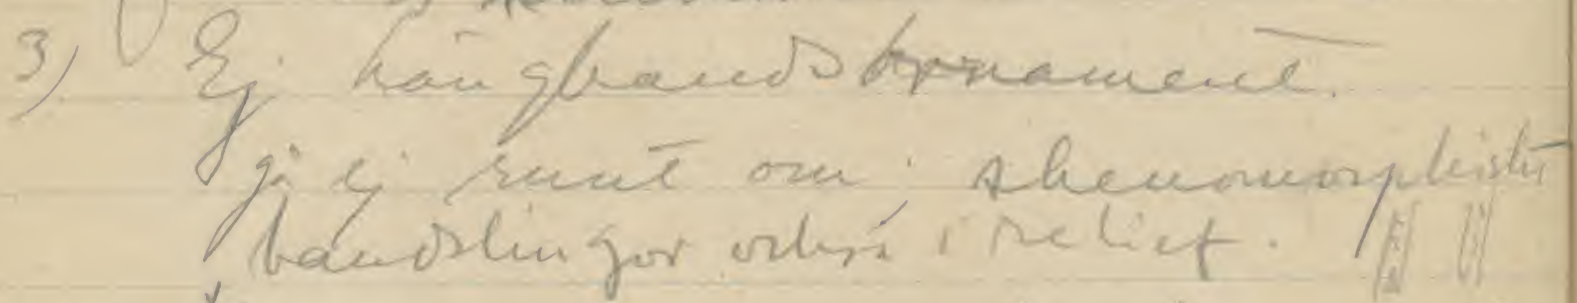 3) Ej hängbandsornament.
gå ej runt om. skeuomorphistis
bandslingor också i relief.